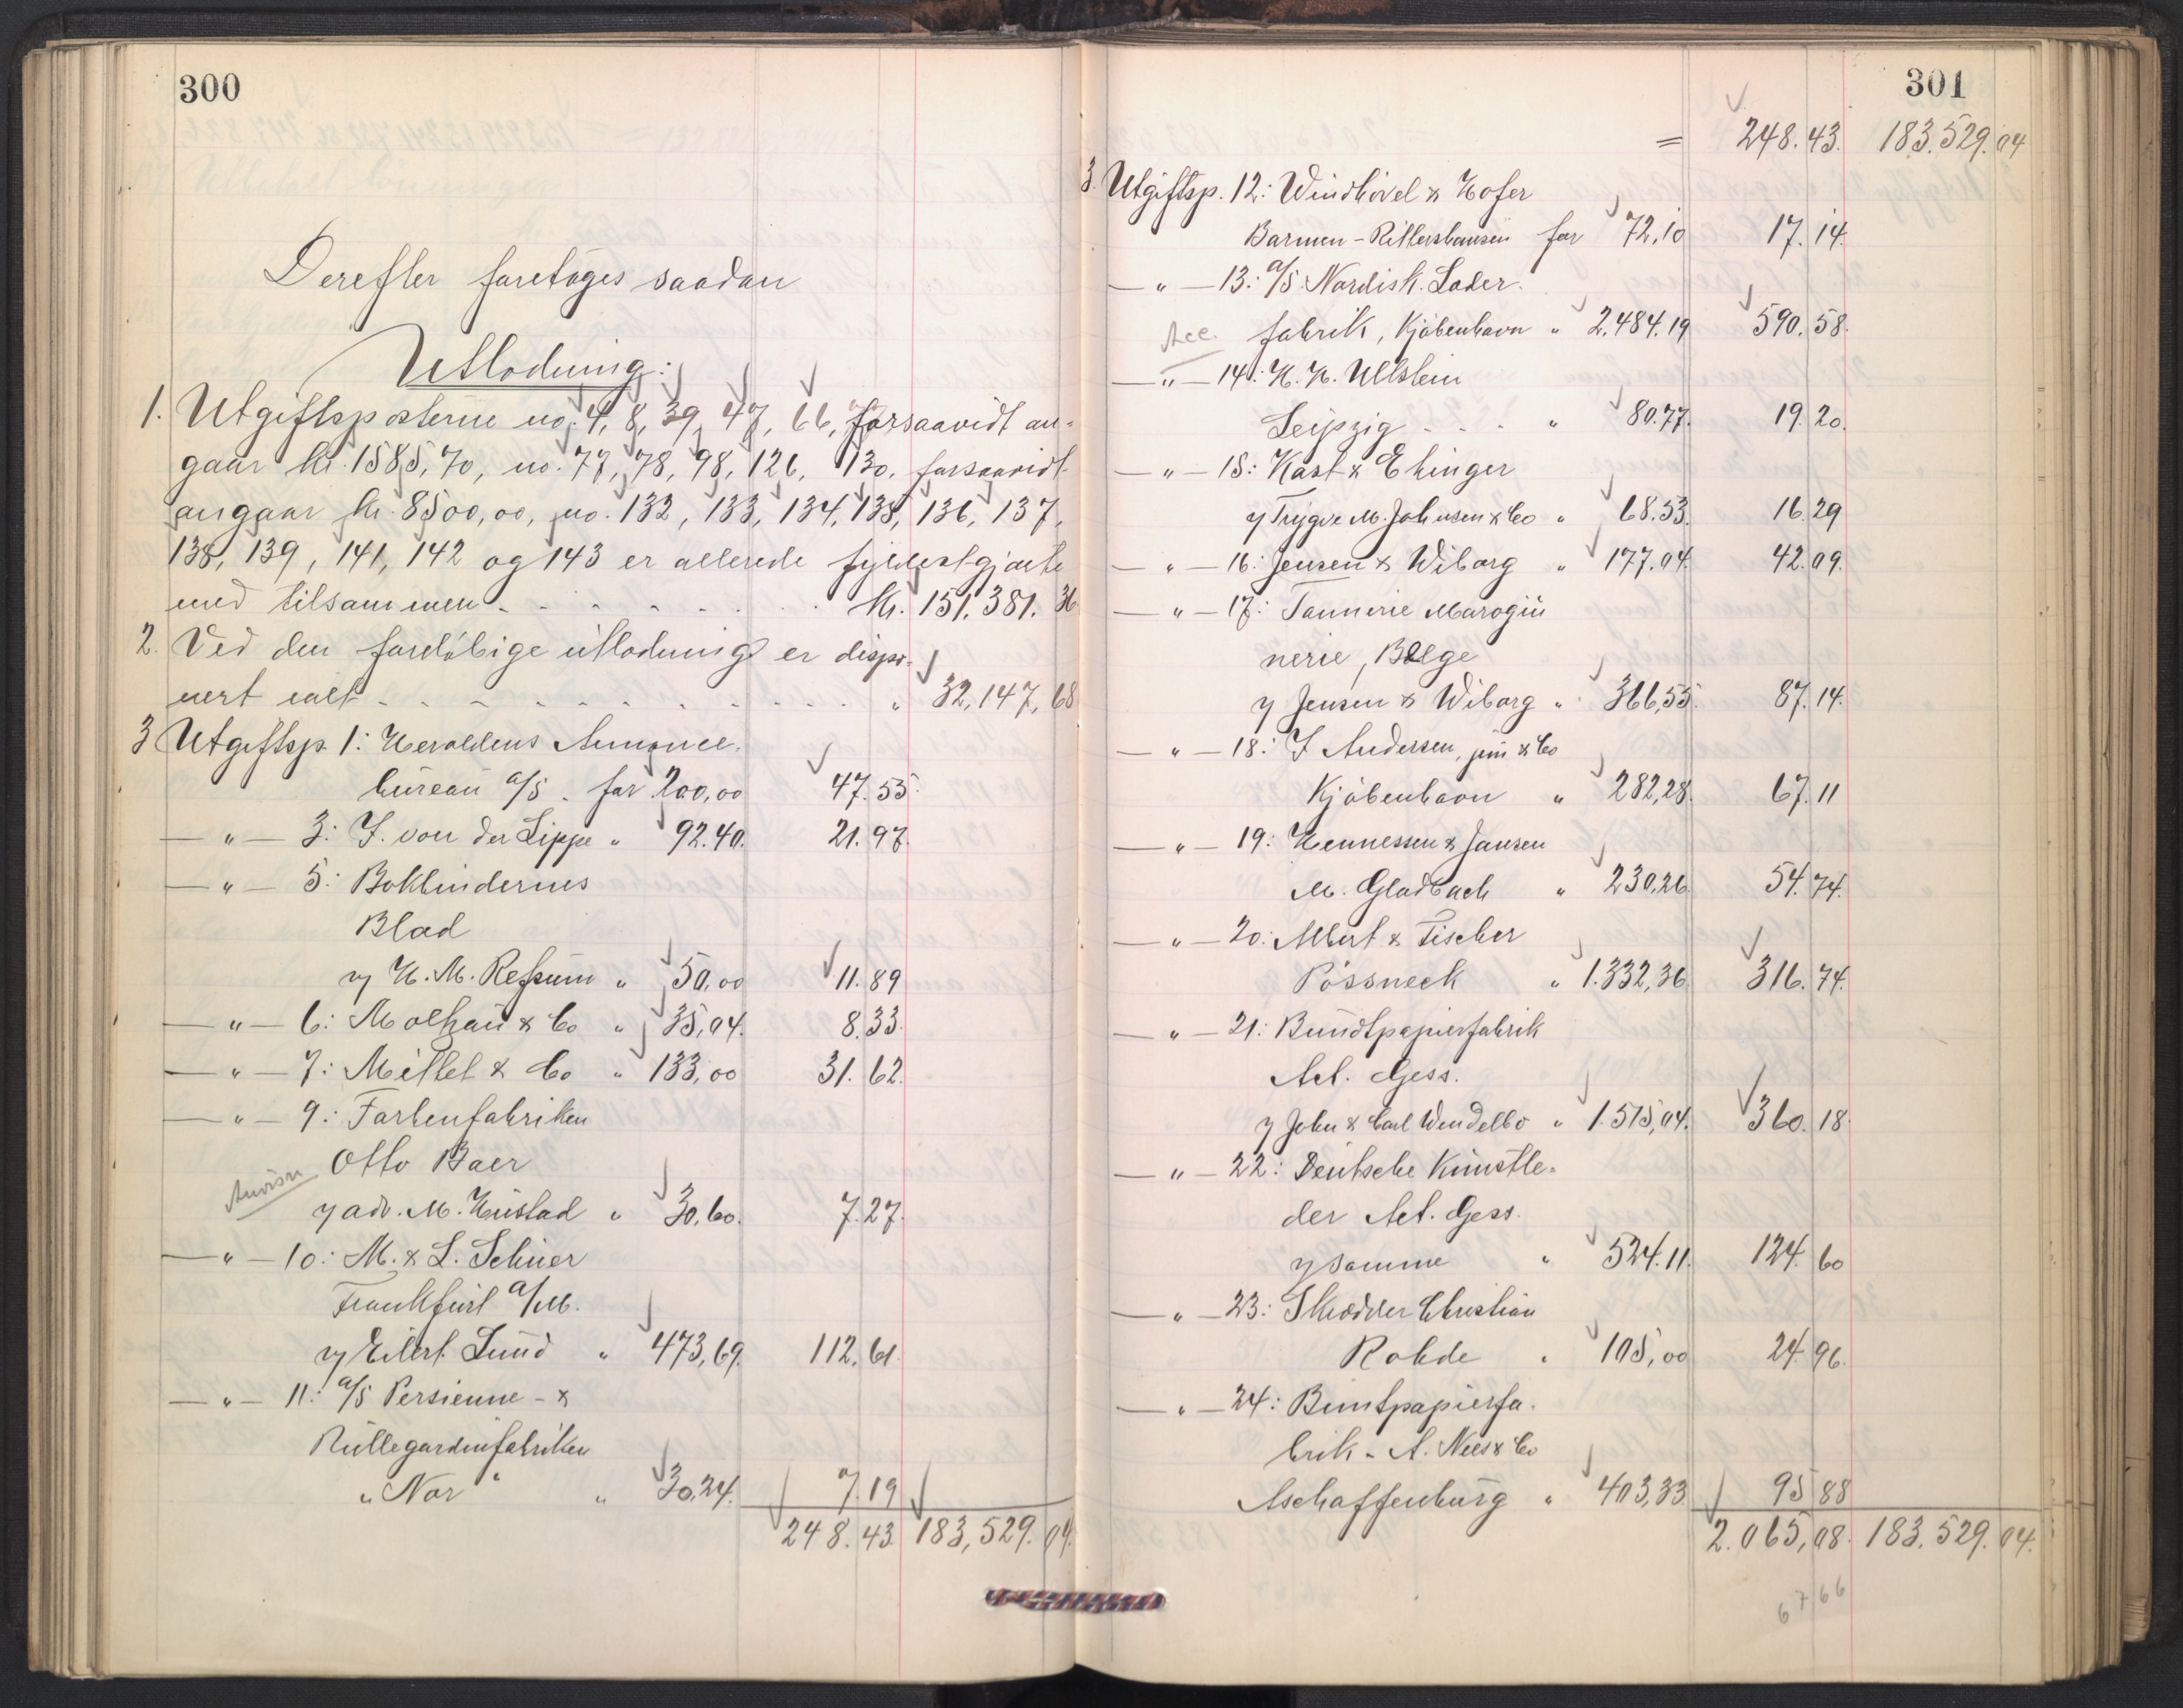 300
Derefter foretoges saadan
Utlodning:
1. Utgiftsposterne no. 4, 8, 39, 47, 66, forsaavidt an=
gaar kr. 1585,70, no. 77, 78, 98, 126, 130, forsaavidt
angaar kr. 8500,00, no. 132, 133, 134, 135, 136, 137,
138, 139, 141, 142 og 143 er allerede fyldestgjorte
med tilsammen - - - - - - - kr. 151.381.36
2. Ved den foreløbige utlodning er dispo=
nert ialt - - - - - - - - - - " 32,147,68
3 Utgiftsp. 1: Heroldens Annonce.
büreau a/s. for 200,00 47.55.
— " — 3: F. von der Lippe " 92.40. 21.97.
— " — 5: Bokbindernes
Blad
v/ H. M. Refsum " 50,00 11.89
— " — 6: Molhau & Co " 35,04. 8.33.
— " — 7: Mittet & Co " 133,00 31.62.
— " — 9: Farbenfabriken
Otto Baer
Anvisn
v/ adv. M. Hustad " 30,60. 7.27.
— " — 10: M. & L. Schier
Frankfurt a/M.
v/ Eilert Lund " 473,69. 112.61.
— " — 11: a/s Persienne - &
Rullegardinfabriken
"Nor" " 30.24. 7.19
248.43. 183,529.04.
301
= 248.43. 183.529.04
3. Utgiftsp. 12: Windhövel & Hofer
Barmen-Rittershausen for 72,10 17.14.
— " — 13: a/s Nordisk. Læder.
Acc. fabrik, Kjøbenhavn " 2.484.19 590.58.
— " — 14: H. H. Ullstein
Leipzig - - - " 80.77. 19.20.
— " — 15: Kast & Ehinger
v/ Trygve M. Johnsen & Co " 68.53. 16.29
— " — 16: Jensen & Wiborg " 177.04. 42.09.
— " — 17: Tannerie Maroqui
nerie, Belge
v/ Jensen & Wiborg " 366,55. 87.14.
— " — 18: I Andersen, jun & Co
Kjøbenhavn " 282,28. 67.11
— " — 19: Hennessen & Jansen
M. Gladbach " 230,26 54.74.
— " — 20: Albert & Fischer
Pössneck " 1.332,36 316.74.
— " — 21: Bundtpapierfabrik
Act. Gess.
v/ John & Carl Wendelbo " 1.515,04. 360.18.
— " — 22: Deutsche Kunstle=
der Act. Gess.
v/ samme " 524.11. 124.60
— " — 23: Skrædder Christian
Rohde " 105,00 24.96.
— " — 24: Buntpapierfa.
brik - A. Nees & Co
Aschaffenburg " 403,33 95.88
2.065,08. 183.529.04.
6 7 66